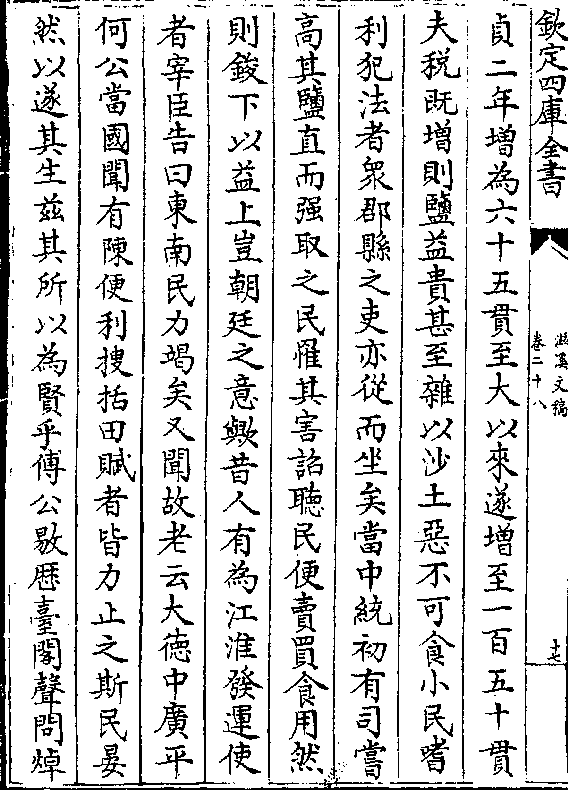 欽定四庫全書
滋溪文稿
卷二十八
十七
貞二年增為六十五貫至大以來遂增至一百五十貫
夫稅既增則鹽益貴甚至雜以沙土惡不可食小民嗜
利犯法者衆郡縣之吏亦從而坐矣當中統初有司嘗
高其鹽直而强取之民罹其害詔聽民便賣買食用然
則鋑下以益上豈朝廷之意歟昔人有為江淮發運使
者宰臣告曰東南民力竭矣又聞故老云大德中廣平
何公當國聞有陳便利搜括田賦者皆力止之斯民晏
然以遂其生兹其所以為賢乎傅公敭歴臺閣聲問焯